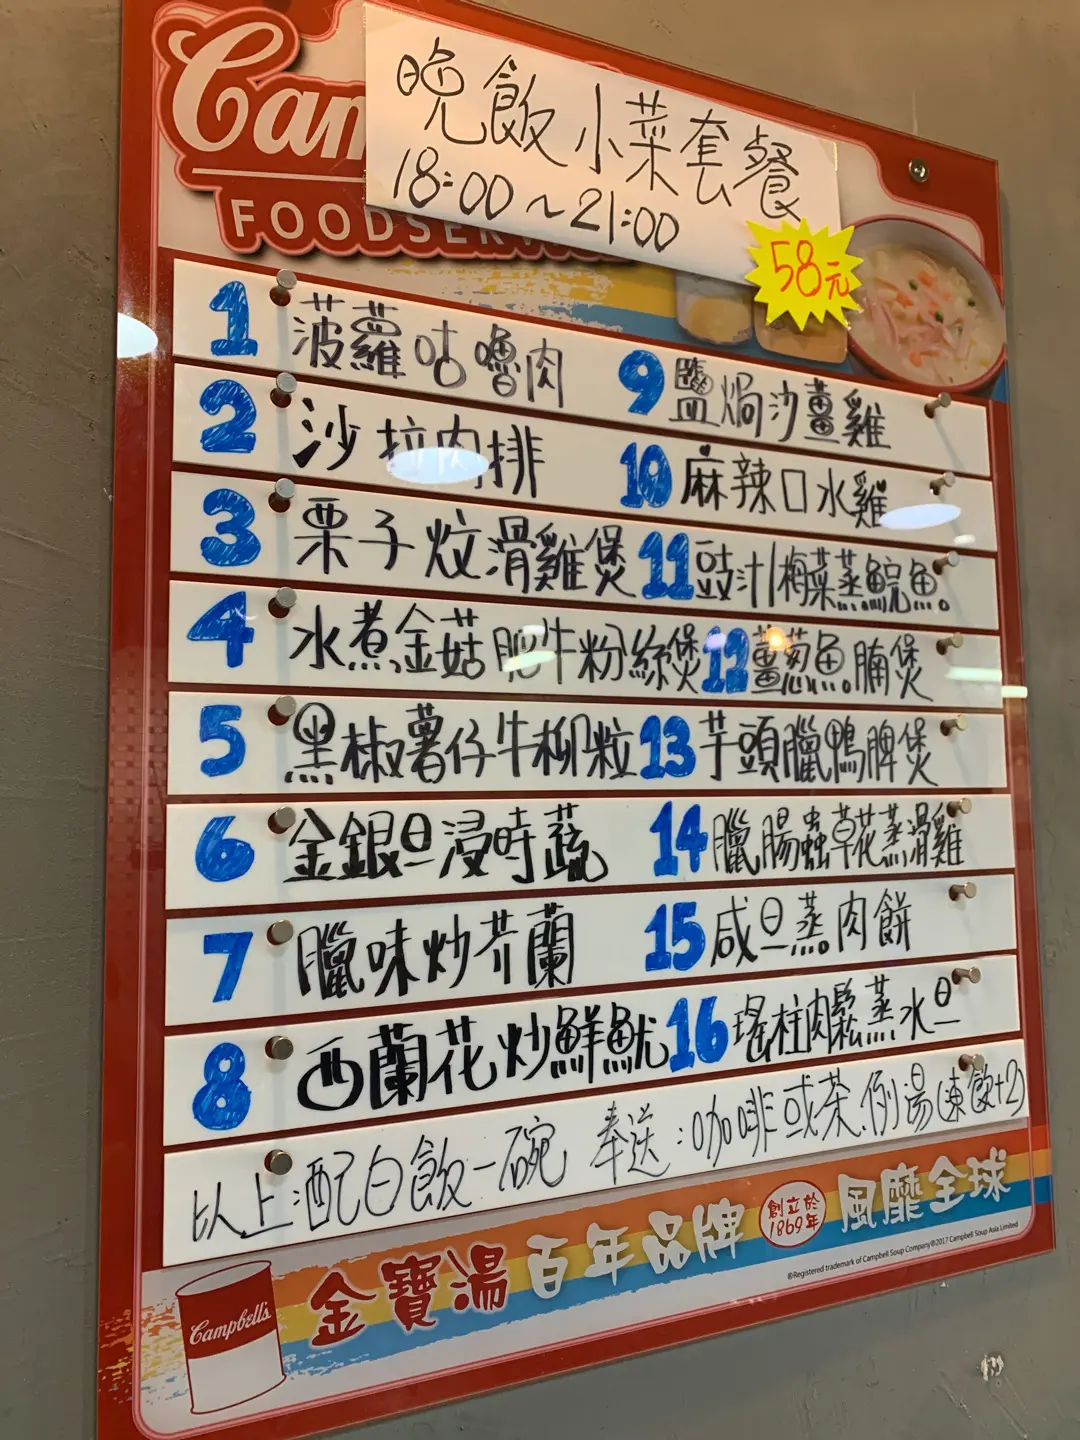 Cam
FOODSERV
晚飯小菜套餐
18:00～21:00
58元
1 菠蘿咕嚕肉
2 沙拉肉排
3 栗子炆滑雞煲
4 水煮金菇肥牛粉絲煲
5 黑椒薯仔牛柳粒
6 金銀旦浸時蔬
7 臘味炒芥蘭
8 西蘭花炒鮮魷
9 鹽焗沙薑雞
10 麻辣口水雞
11 豉汁梅菜蒸鯇魚
12 薑葱魚腩煲
13 芋頭臘鴨脾煲
14 臘腸蟲草花蒸滑雞
15 咸旦蒸肉餅
16 瑤柱肉鬆蒸水旦
以上:配白飯一碗 奉送:咖啡或茶.例湯(凍飲+2)
Campbell's
金寶湯 百年品牌 創立於1869年 風靡全球
®Registered trademark of Campbell Soup Company©2017 Campbell Soup Asia Limited